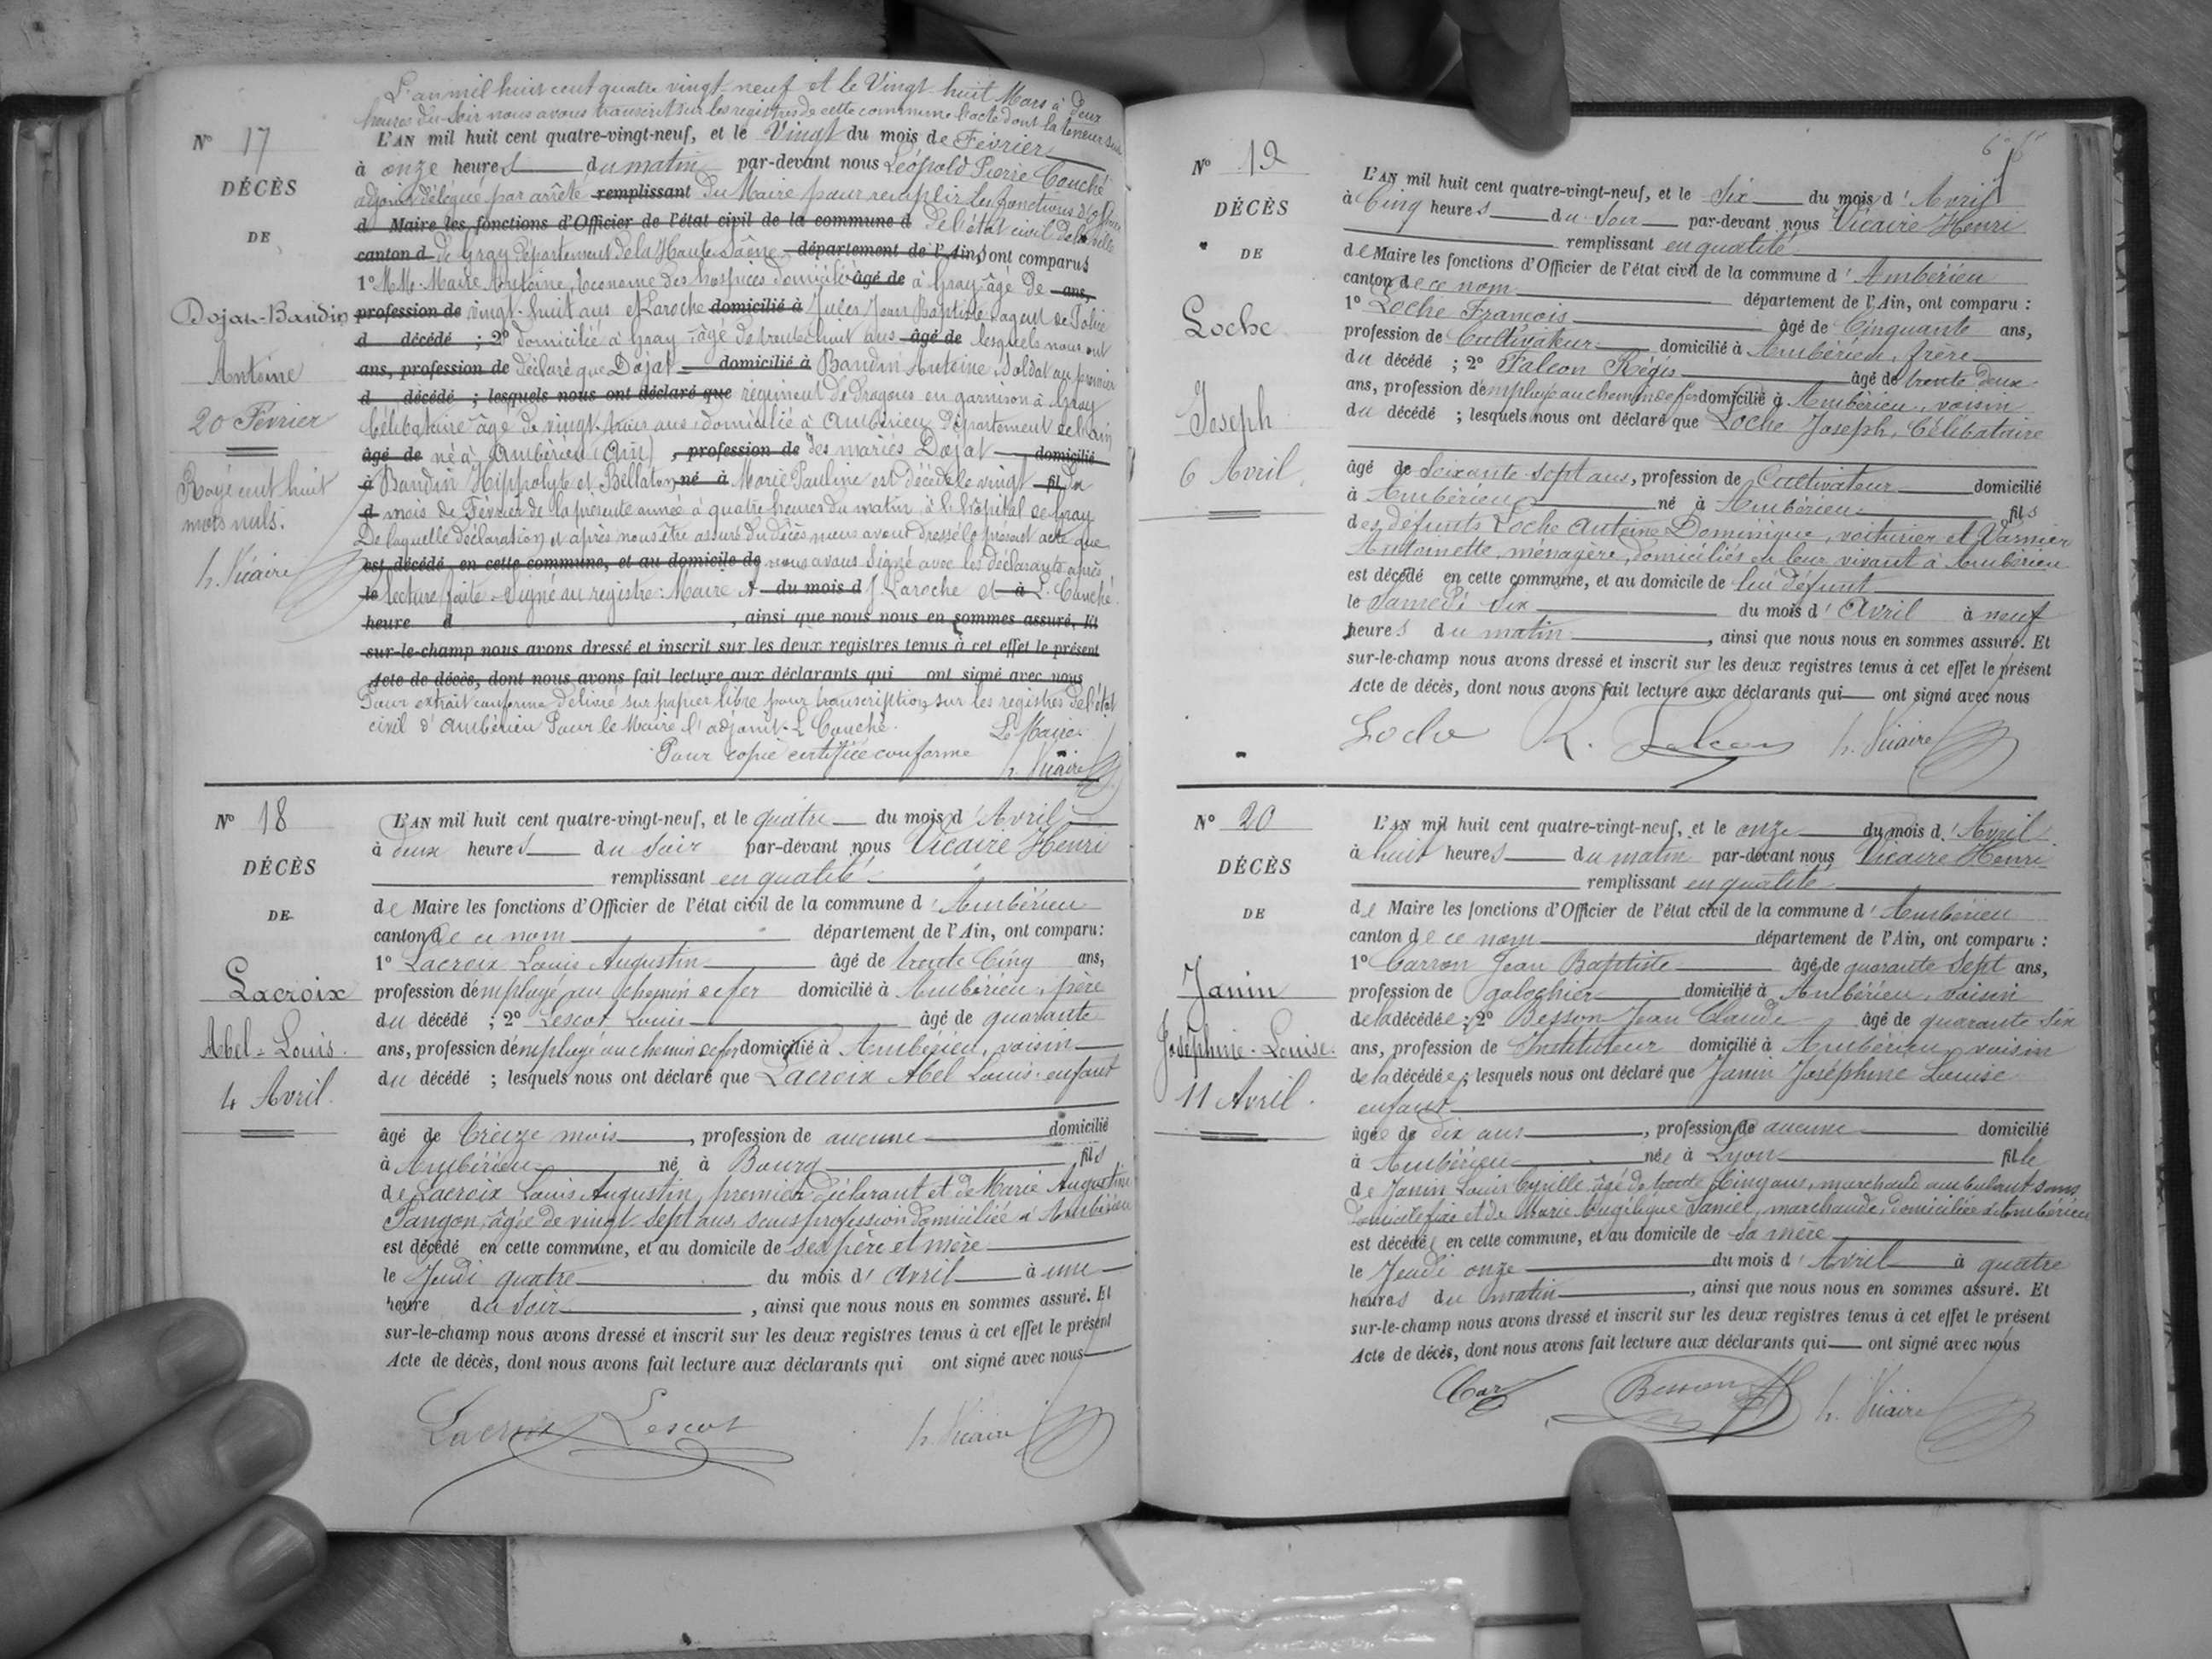 L'an mil huit cent quatre vingt-neuf et le Vingt-huit Mars à deux
heures du soir nous avons transcrit sur les registres de cette commune l'acte dont la teneur suit
N° 17
DÉCÈS
DE
Dojat-Baudin
Antoine
20 Février
Rayé cent huit
mots nuls.
h. Vicaire
L'AN mil huit cent quatre-vingt-neuf, et le Vingt du mois de Février
à onze heures du matin par-devant nous Léopold Pierre Couché
adjoint délégué par arrêté remplissant du Maire pour remplir les fonctions d'officier
d Maire les fonctions d'Officier de l'état civil de la commune d de l'état civil de la ville
canton d de Gray département de la Haute-Saône département de l'Ain, ont comparus
1° MM. Maire Antoine, Econome des hospices domicilié âgé de à Gray âgé de ans,
profession de vingt-huit ans et Laroche domicilié à Jules Jean Baptiste agent de Police
d décédé ; 2° domicilié à Gray, âgé de trente huit ans âgé de lesquels nous ont
ans, profession de déclaré que Dojat domicilié à Baudin Antoine, Soldat au premier
d décédé ; lesquels nous ont déclaré que régiment de Dragons en garnison à Gray
Célibataire âgé de vingt-trois ans, domicilié à Ambérieu, Département de l'Ain
âgé de né à Ambérieu (Ain) , profession de des mariés Dojat domicilié
à Baudin Hippolyte et Bellaton né à Marie Pauline est décédé le vingt fil du
d mois de Février de la présente année à quatre heures du matin, à l'hôpital de Gray
De laquelle déclaration et après nous être assuré du décès nous avons dressé le présent acte que
est décédé en cette commune, et au domicile de nous avons signé avec les déclarants après
le lecture faite. Signé au registre: Maire A. du mois d J. Laroche et à L. Couché.
heure d , ainsi que nous nous en sommes assuré. Et
sur-le-champ nous avons dressé et inscrit sur les deux registres tenus à cet effet le présent
Acte de décès, dont nous avons fait lecture aux déclarants qui ont signé avec nous
Pour extrait conforme délivré sur papier libre pour transcription sur les registres de l'état
civil d'Ambérieu Pour le Maire l'adjoint. L. Couché.
Le Maire.
Pour copie certifiée conforme
h. Vicaire
N° 18
DÉCÈS
DE
Lacroix
Abel-Louis.
4 Avril.
L'AN mil huit cent quatre-vingt-neuf, et le quatre du mois d'Avril
à deux heures du soir par-devant nous Vicaire Henri
remplissant en qualité
de Maire les fonctions d'Officier de l'état civil de la commune d'Ambérieu
canton de ce nom département de l'Ain, ont comparu :
1° Lacroix Louis Augustin âgé de trente Cinq ans,
profession d'employé au chemin de fer domicilié à Ambérieu, père
du décédé ; 2° Lescot Louis âgé de quarante
ans, profession d'employé au chemin de fer domicilié à Ambérieu, voisin
du décédé ; lesquels nous ont déclaré que Lacroix Abel Louis. enfant
âgé de treize mois , profession de aucune domicilié
à Ambérieu né à Bourg fils
de Lacroix Louis Augustin, premier déclarant et de Marie Augustine
Pangon, âgée de vingt-sept ans, sans profession domiciliée à Ambérieu
est décédé en cette commune, et au domicile de ses père et mère
le Jeudi quatre du mois d'avril à une
heure du soir , ainsi que nous nous en sommes assuré. Et
sur-le-champ nous avons dressé et inscrit sur les deux registres tenus à cet effet le présent
Acte de décès, dont nous avons fait lecture aux déclarants qui ont signé avec nous
Lacroix Lescot h. Vicaire
N° 19
DÉCÈS
DE
Loche
Joseph
6 Avril.
L'AN mil huit cent quatre-vingt-neuf, et le Six du mois d'Avril
à Cinq heures du soir par-devant nous Vicaire Henri
remplissant en qualité
de Maire les fonctions d'Officier de l'état civil de la commune d'Ambérieu
canton de ce nom département de l'Ain, ont comparu :
1° Loche François âgé de Cinquante ans,
profession de Cultivateur domicilié à Ambérieu, frère
du décédé ; 2° Falcon Régis âgé de trente deux
ans, profession d'employé au chemin de fer domicilié à Ambérieu, voisin
du décédé ; lesquels nous ont déclaré que Loche Joseph, Célibataire
âgé de Soixante-Sept ans, profession de Cultivateur domicilié
à Ambérieu né à Ambérieu fils
des défunts Loche Antoine Dominique, voiturier et Varnier
Antoinette, ménagère, domiciliés de leur vivant à Ambérieu
est décédé en cette commune, et au domicile de lui défunt
le Samedi Six du mois d'Avril à neuf
heures du matin , ainsi que nous nous en sommes assuré. Et
sur-le-champ nous avons dressé et inscrit sur les deux registres tenus à cet effet le présent
Acte de décès, dont nous avons fait lecture aux déclarants qui ont signé avec nous
Loche R. Falcon h. Vicaire
N° 20
DÉCÈS
DE
Janin
Joséphine-Louise.
11 Avril.
L'AN mil huit cent quatre-vingt-neuf, et le onze du mois d'Avril
à huit heures du matin par-devant nous Vicaire Henri
remplissant en qualité
de Maire les fonctions d'Officier de l'état civil de la commune d'Ambérieu
canton de ce nom département de l'Ain, ont comparu :
1° Carron Jean Baptiste âgé de quarante Sept ans,
profession de galochier domicilié à Ambérieu, voisin
de la décédée ; 2° Besson Jean Claude âgé de quarante Six
ans, profession de Instituteur domicilié à Ambérieu, voisin
de la décédée ; lesquels nous ont déclaré que Janin Joséphine Louise
enfant
âgée de dix ans , profession de aucune domicilié
à Ambérieu née à Lyon fille
de Janin Louis Cyrille, âgé de trente Cinq ans, marchand ambulant sans
domicile fixe et de Marie Angélique Daniel, marchande, domiciliée à Ambérieu
est décédée en cette commune, et au domicile de sa mère
le Jeudi onze du mois d'Avril à quatre
heures du matin , ainsi que nous nous en sommes assuré. Et
sur-le-champ nous avons dressé et inscrit sur les deux registres tenus à cet effet le présent
Acte de décès, dont nous avons fait lecture aux déclarants qui ont signé avec nous
Car Besson h. Vicaire